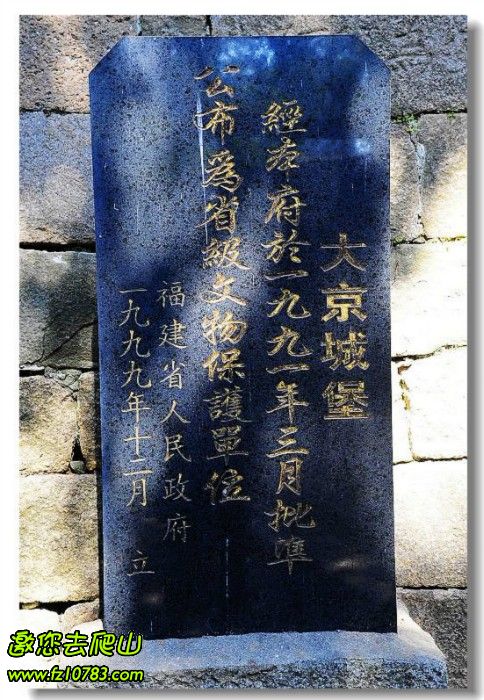 大京城堡
經本府於一九九一年三月批準
公布爲省級文物保護單位
福建省人民政府
一九九九年十二月 立
邀您去爬山
www.fz10783.com